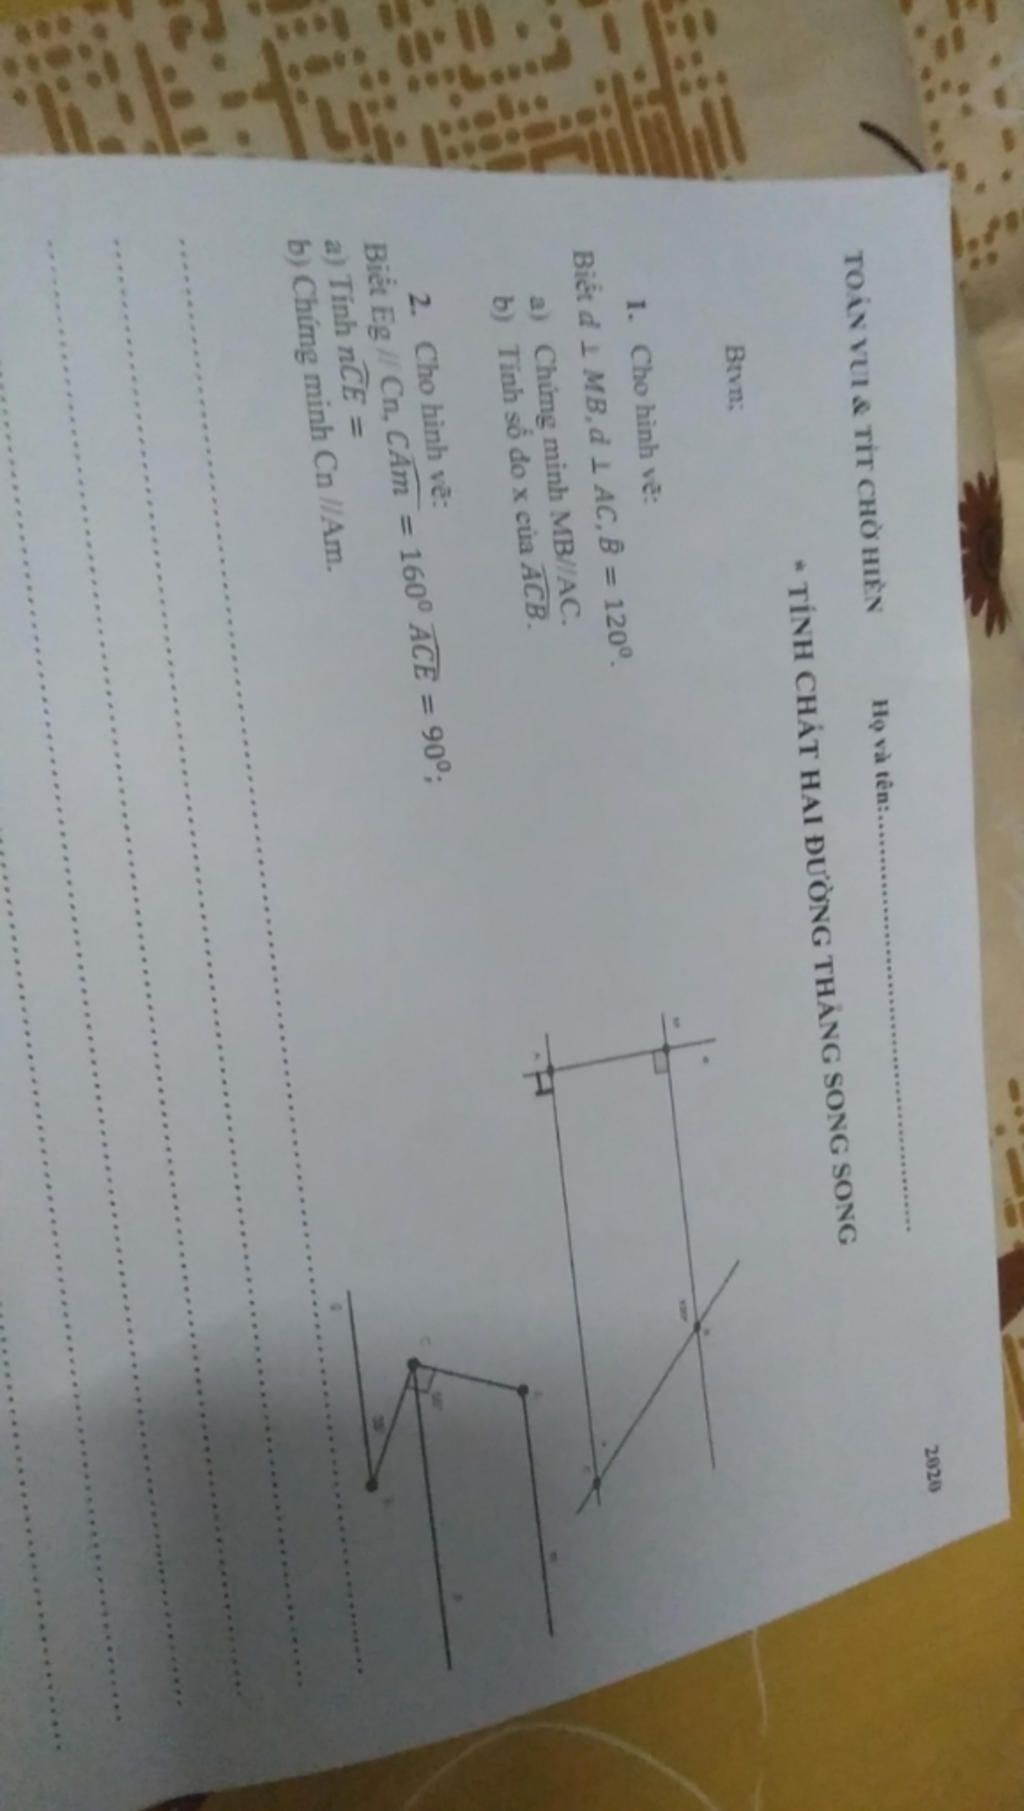 TOÁN VUI & TÍT CHỜ HIỀN Họ và tên:........................ 2020
* TÍNH CHẤT HAI ĐƯỜNG THẲNG SONG SONG
Btvn;
1. Cho hình vẽ:
Biết d ⊥ MB, d ⊥ AC, B̂ = 120⁰.
a) Chứng minh MB//AC.
b) Tính số đo x của ACB.
2. Cho hình vẽ:
Biết Eg // Cn, CAm = 160⁰ ACE = 90⁰;
a) Tính nCE =
b) Chứng minh Cn //Am.